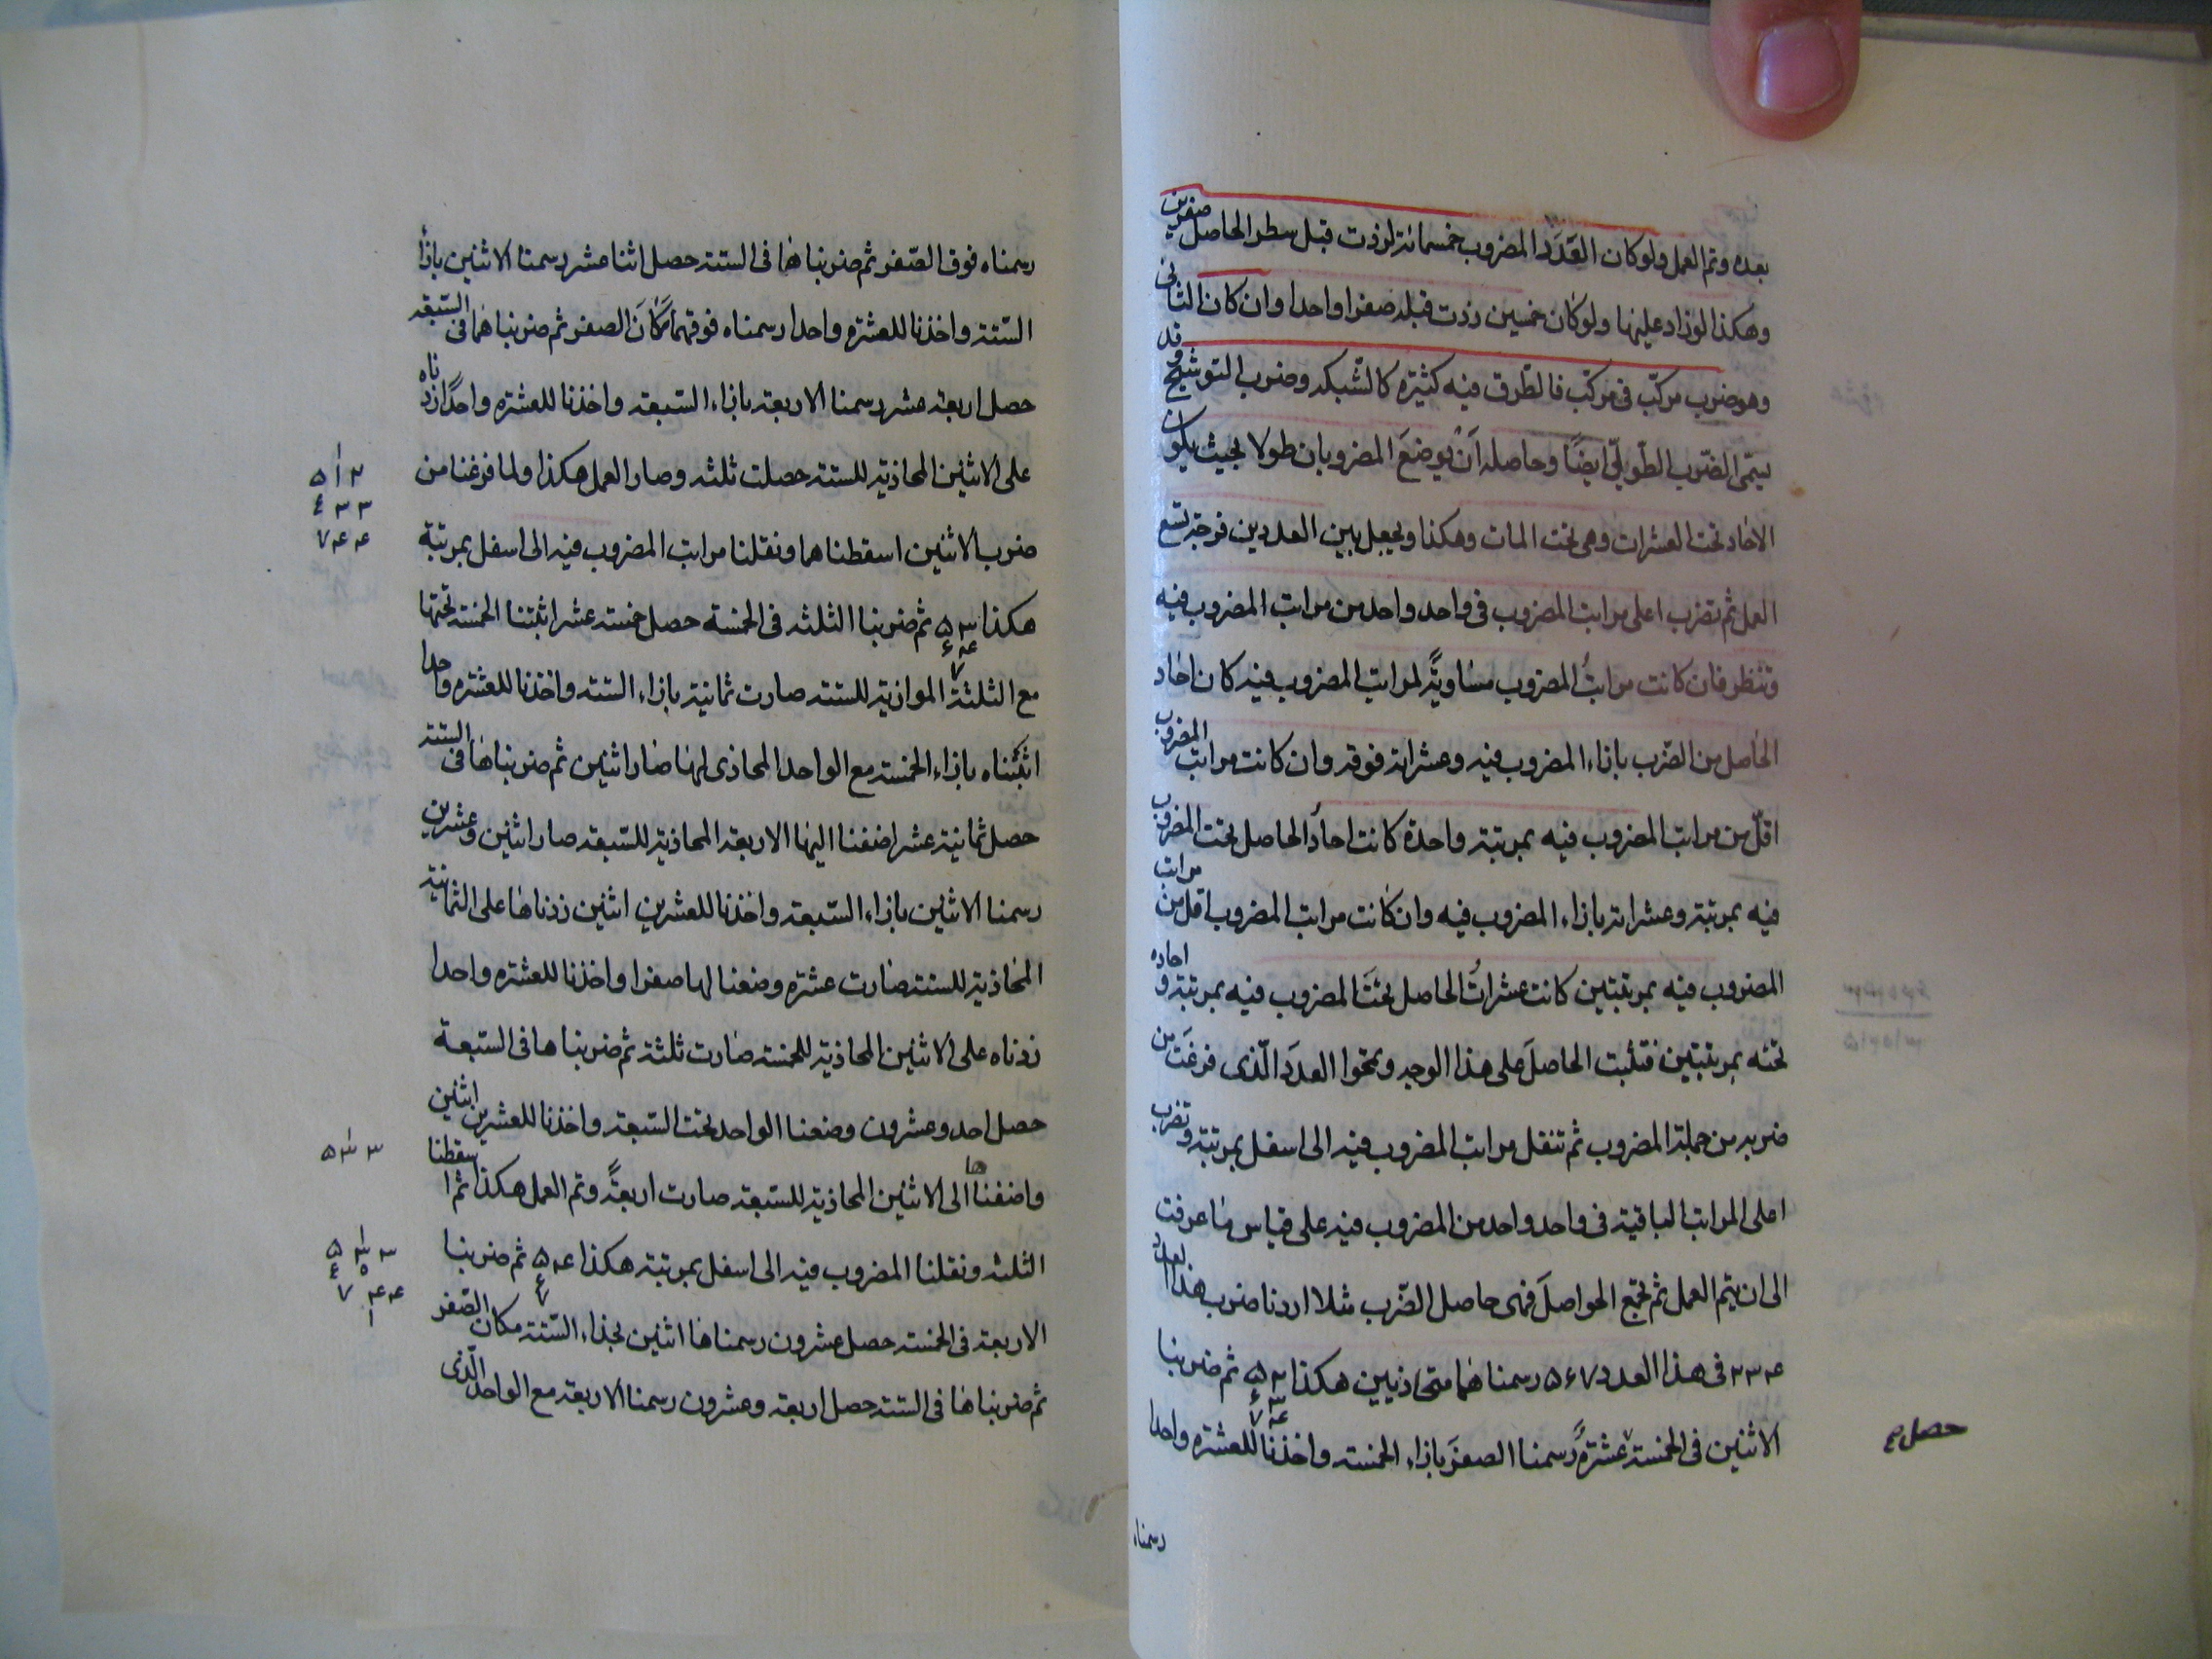 بعده وتم العمل ولو كان العدد المضروب خمسمائة لزدت قبل سطر الحاصل صفرين
وهكذا لو زاد عليها ولو كان خمسين زدت قبله صفرا واحدا وان كان الثانى
وهو ضرب مركّب فى مركّب فالطّرق فيه كثيرة كالشبكة وضرب التوشيح وقد
يسمّى الضّرب الطّويلّى ايضًا وحاصله اَنْ يوضعَ المضروبان طولا بحيث يكون
الاحاد تحت العشرات وهى تحت المات وهكذا ويجعل بين العددين فرجة تسع
العمل ثم تضرب اعلى مراتب المضروب فى واحد واحد من مراتب المضروب فيه
وتنظر فان كانت مراتبُ المضروب مساويةً لمراتب المضروب فيه كان احاد
الحاصل من الضّرب بازاء المضروب فيه وعشراته فوقه وان كانت مراتب المضروب
اقلّ من مراتب المضروب فيه بمرتبة واحدة كانت احادُ الحاصل تحت المضروب
فيه بمرتبة وعشراته بازاء المضروب فيه وان كانت مراتب المضروب اقل من مراتب
المضروب فيه بمرتبتين كانت عشراتُ الحاصل تحتَ المضروب فيه بمرتبة و احاده
تحته بمرتبتين فتثبت الحاصلَ على هذا الوجه وتمحوا العددَ الّذى فرغتَ من
ضربه من جملة المضروب ثم تنقل مراتب المضروب فيه الى اسفل بمرتبة وتضرب
اعلى المراتب الباقية فى واحد واحد من المضروب فيه على قياس ما عرفت
الى ان يتم العمل ثم تجمع الحواصلَ فهى حاصل الضّرب مثلا اردنا ضرب هذا العدد
٢٣۴ فى هذا العدد ۵۶٧ رسمناهما متحاذيين هكذا ٢ ۵ ثم ضربنا
٣ ۶
۴ ٧
الاثنين فى الخمسة عشرةً رسمنا الصفرَ بازاء الخمسة واخذنا للعشرة واحدا
حصل
رسمناه
رسمناه فوق الصّفر ثم ضربناها فى الستة حصل اثنا عشر رسمنا الاثنين بازأ
الستّة واخذنا للعشرة واحدا رسمناه فوقهما مكانَ الصفر ثم ضربناهما فى السّبعة
حصل اربعة عشر رسمنا الاربعة بازاء السّبعة واخذنا للعشرة واحدًا زدناه
على الاثنين المحاذية للستة حصلت ثلثة وصار العمل هكذا ولما فرغنا من
٢ ١ ۵
٣ ٣ ۶
۴ ۴ ٧
ضرب الاثنين اسقطناهما ونقلنا مراتب المضروب فيه الى اسفل بمرتبة
هكذا ٣ ۵ ثم ضربنا الثلثة فى الخمسة حصل خمسة عشر اثبتنا الخمسة تحتها
۴ ۶
٧
مع الثلثة الموازية للستة صارت ثمانية بازاء الستة واخذنا للعشرة واحدا
اثبتناه بازاء الخمسة مع الواحد المحاذى لها صار اثنين ثم ضربناها فى الستة
حصل ثمانية عشر اضفنا اليها الاربعة المحاذية للسّبعة صار اثنين وعشرين
رسمنا الاثنين بازاء السّبعة واخذنا للعشرين اثنين زدناها على الثمانية
المحاذية للستة صارت عشرة وضعنا لها صفرا واخذنا للعشرة واحدا
زدناه على الاثنين المحاذية للخمسة صارت ثلثة ثم ضربناها فى السّبعة
حصل احد وعشرون وضعنا الواحد تحت السّبعة واخذنا للعشرين اثنين
واضفناها الى الاثنين المحاذية للسّبعة صارت اربعةً وتم العمل هكذا ثم اسقطنا
٣ ٣ ۵
الثلثة ونقلنا المضروب فيه الى اسفل بمرتبة هكذا ۴ ۵ ثم ضربنا
۶
٧
٣ ٣ ۵
۶
۴ ۴ ٧
١
الاربعة فى الخمسة حصل عشرون رسمناها اثنين بحذاء الستّة مكان الصّفر
ثم ضربناها فى الستة حصل اربعة وعشرون رسمنا الاربعة مع الواحد الّذى